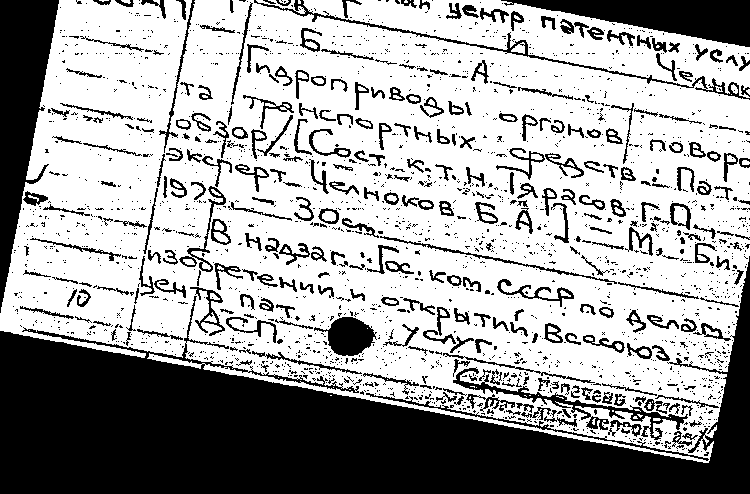 ный центр патентных услу
сов, Г П
Челнок
Б А
Гидроприводы органов поворо
та транспортных средств : Пат.
обзор / [Сост. к.т.н. Тярасов Г.П.,
эксперт Челноков Б.А.]. – М. : Б.и.,
1979. – 30 ст.
В надзаг.: Гос. ком. СССР по делам
изобретений и открытий, Всесоюз.
центр пат. услуг.
ДСП.
10